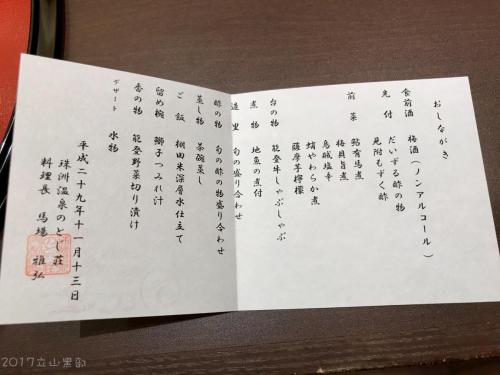 おしながき
食前酒 梅酒(ノンアルコール)
先付 だいずる酢の物
見附もずく酢
前菜 鮎有馬煮
梅貝旨煮
烏賊塩辛
蛸やわらか煮
薩摩芋檸檬
台の物 能登牛しゃぶしゃぶ
煮物 地魚の煮付
造里 旬の盛り合わせ
酢の物 旬の酢の物盛り合わせ
蒸し物 茶碗蒸し
ご飯 棚田米深層水仕立て
留め椀 鰯子つみれ汁
香の物 能登野菜切り漬け
デザート 水物
平成二十九年十一月十三日
珠洲温泉のとじ荘
料理長 馬場 雅弘
2017立山黑部